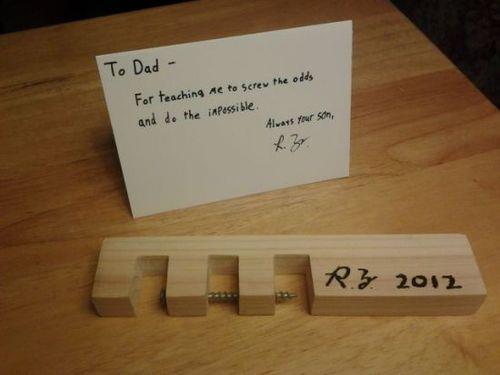 To Dad -
For teaching me to screw the odds
and do the impossible.
Always your son,
R. Zr.
R.Z. 2012